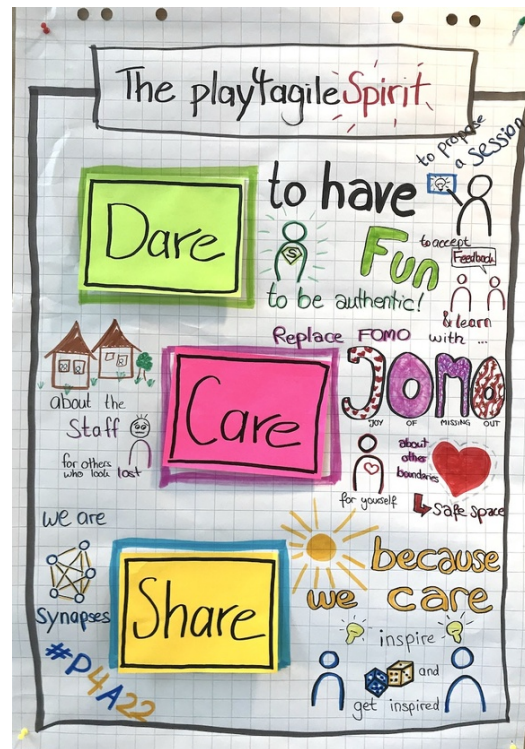 The play4agile Spirit
to propose
a session
Dare
to have
Fun
to be authentic!
to accept
Feedback
& learn
with ...
Replace FOMO
JOMO
JOY OF MISSING OUT
Care
about the
Staff
for others
who look lost
for yourself
about
other
boundaries
Safe Space
we are
Synapses
Share
because
we care
inspire
and
get inspired
#P4A22